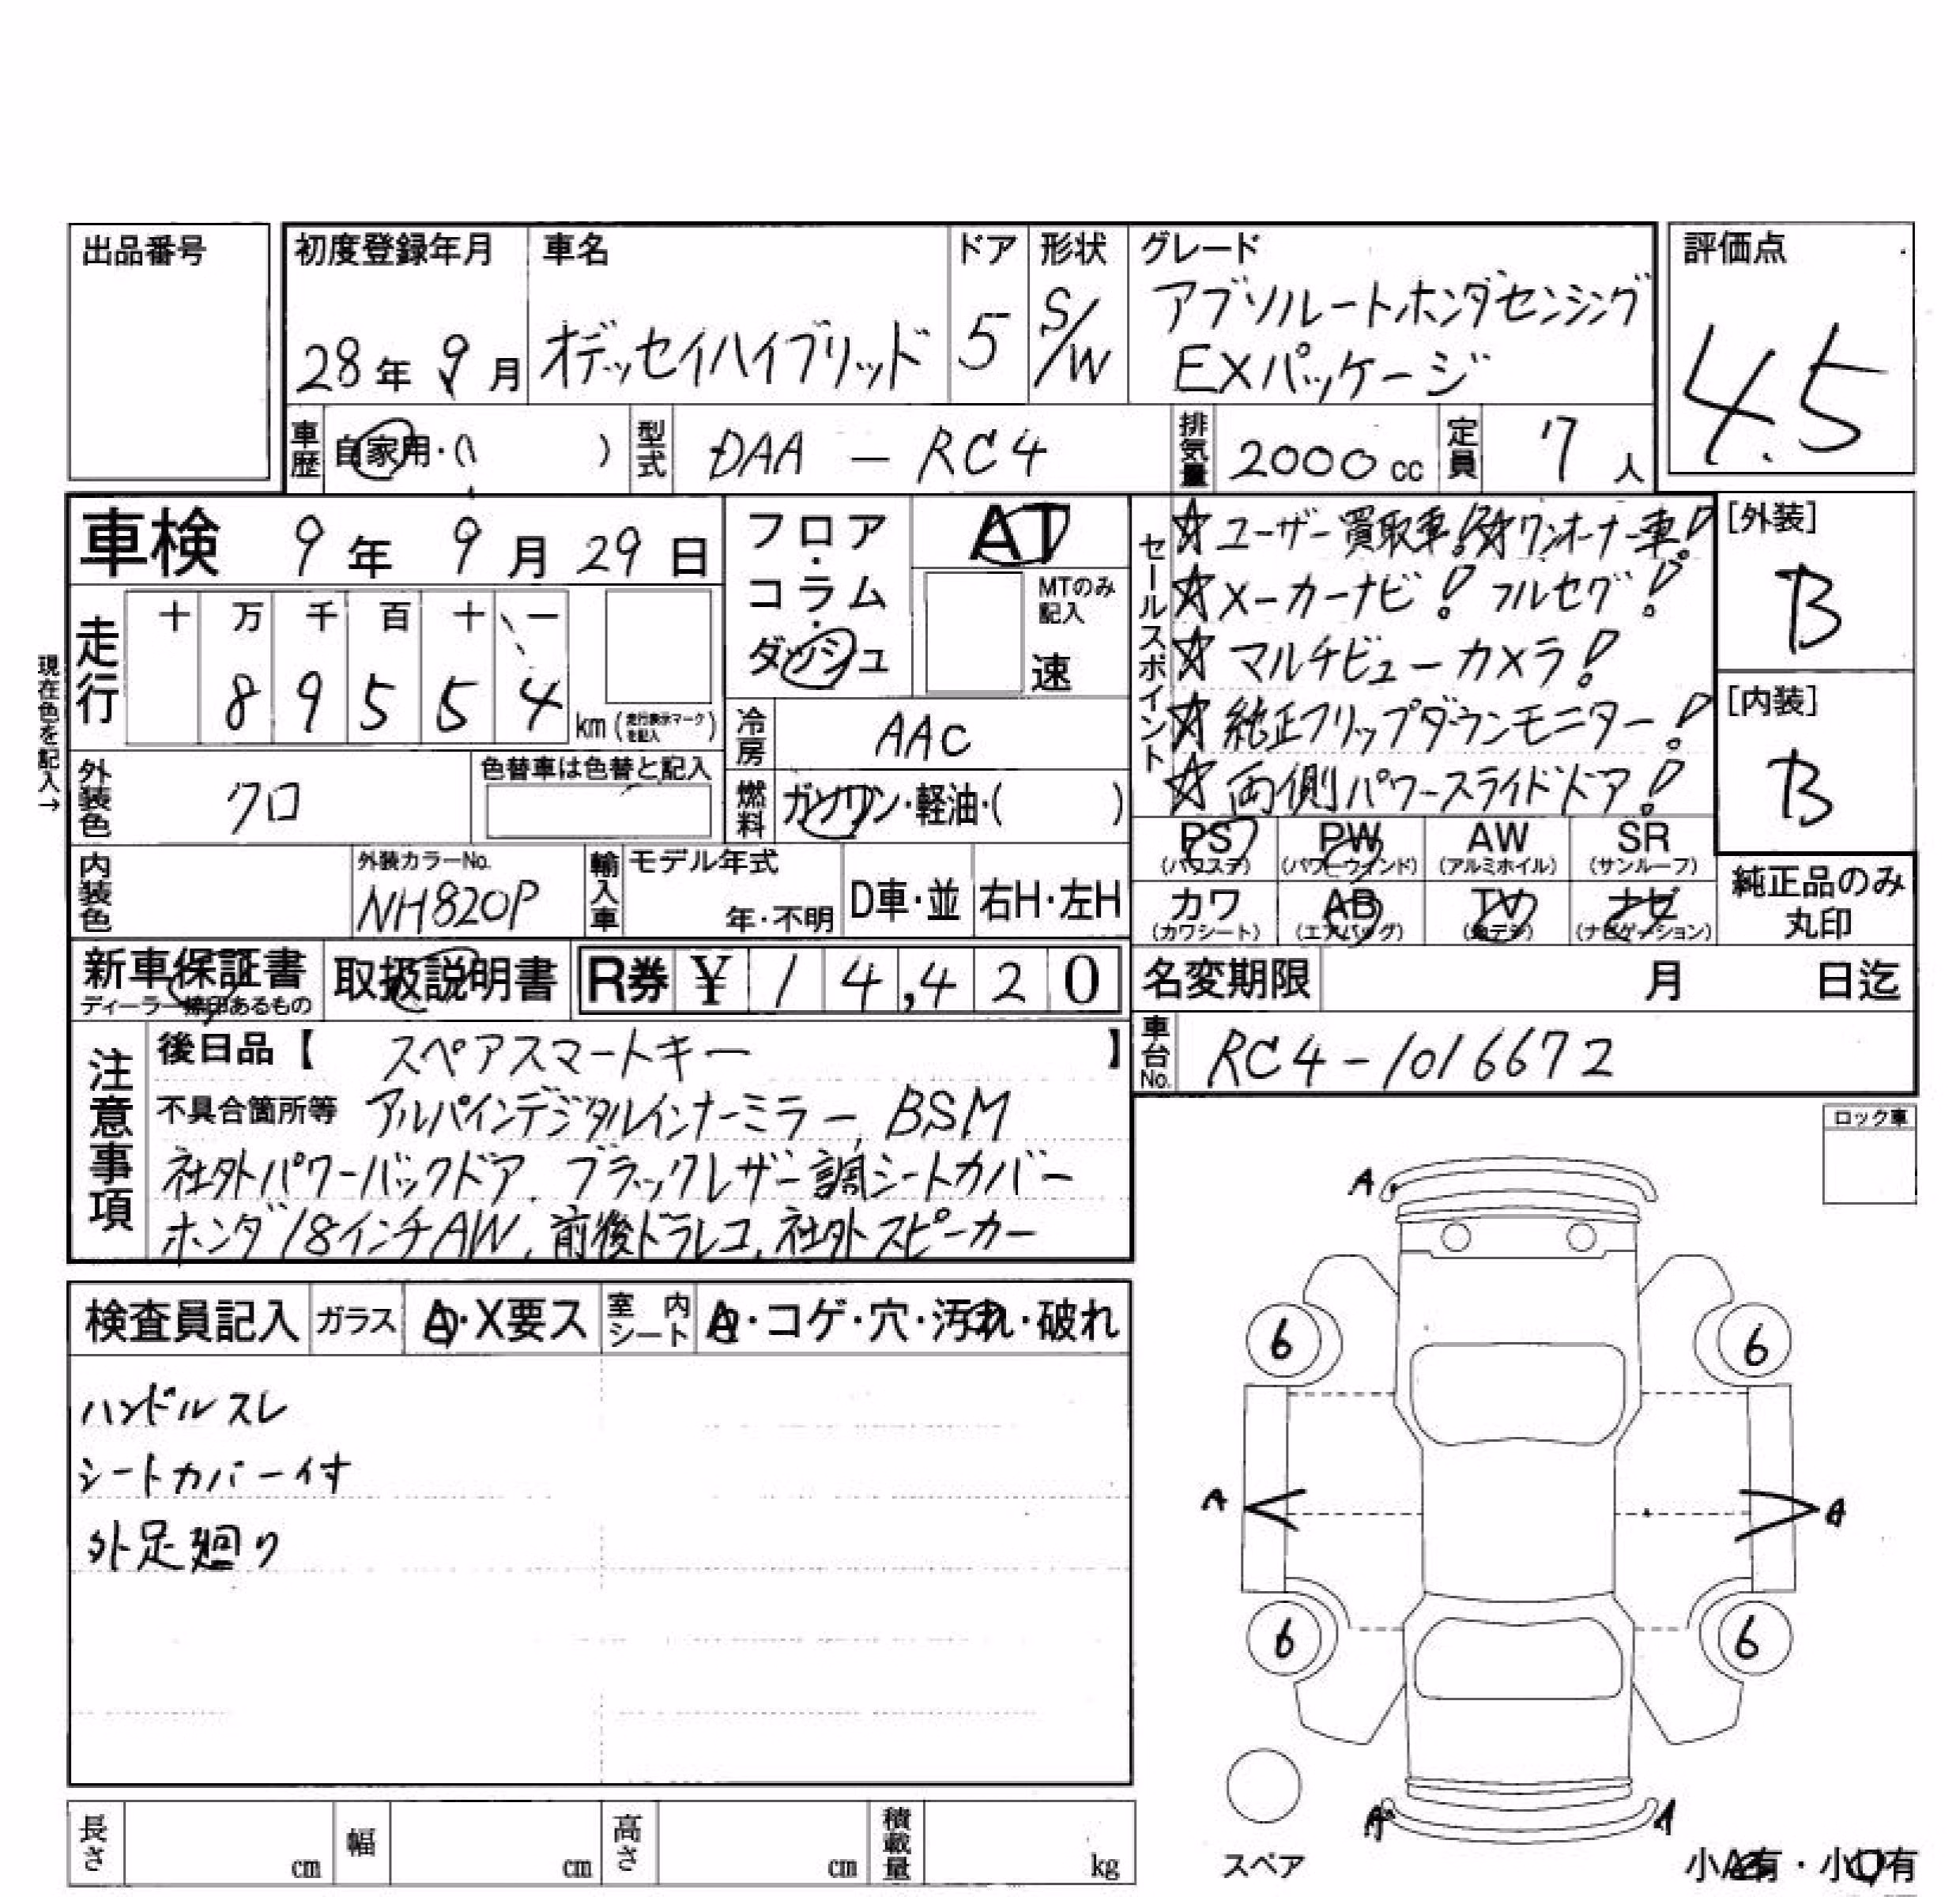 出品番号
初度登録年月 車名 ドア 形状 グレード
28年 9月 オデッセイハイブリッド 5 S/W アブソルートホンダセンシング
EXパッケージ
評価点
4.5
車歴 自家用・( ) 型式 DAA-RC4 排気量 2000cc 定員 7人
車検 9年 9月 29日
フロア・コラム・ダッシュ
AT
MTのみ記入
速
セールスポイント
☆ユーザー買取車!☆ワンオーナー車!
☆メーカーナビ! フルセグ!
☆マルチビューカメラ!
☆純正フリップダウンモニター!
☆両側パワースライドドア!
[外装]
B
[内装]
B
現在色を記入→
走行 十 万 千 百 十 一
8 9 5 5 4 km(走行表示マークを記入)
冷房 AAC
外装色 クロ 色替車は色替と記入
燃料 ガソリン・軽油・( )
PS (パワステ) PW (パワーウインド) AW (アルミホイル) SR (サンルーフ)
カワ (カワシート) AB (エアバッグ) TV ナビ (ナビゲーション)
純正品のみ丸印
内装色 外装カラーNo. NH820P 輸入車 モデル年式 年・不明 D車・並 右H・左H
新車保証書 取扱説明書 R券 ¥ 14,420
名変期限 月 日迄
車台No. RC4-1016672
注意事項
後日品【 スペアスマートキー 】
不具合箇所等 アルパインデジタルインナーミラー, BSM
社外パワーバックドア, ブラックレザー調シートカバー
ホンダ18インチAW, 前後ドラレコ, 社外スピーカー
ロック車
検査員記入 ガラス A・X要ス 室内シート A・コゲ・穴・汚れ・破れ
ハンドルスレ
シートカバー付
外足廻り
A
6 6
A A
6 6
A A
スペア
小A有・小U有
長さ cm 幅 cm 高さ cm 積載量 kg